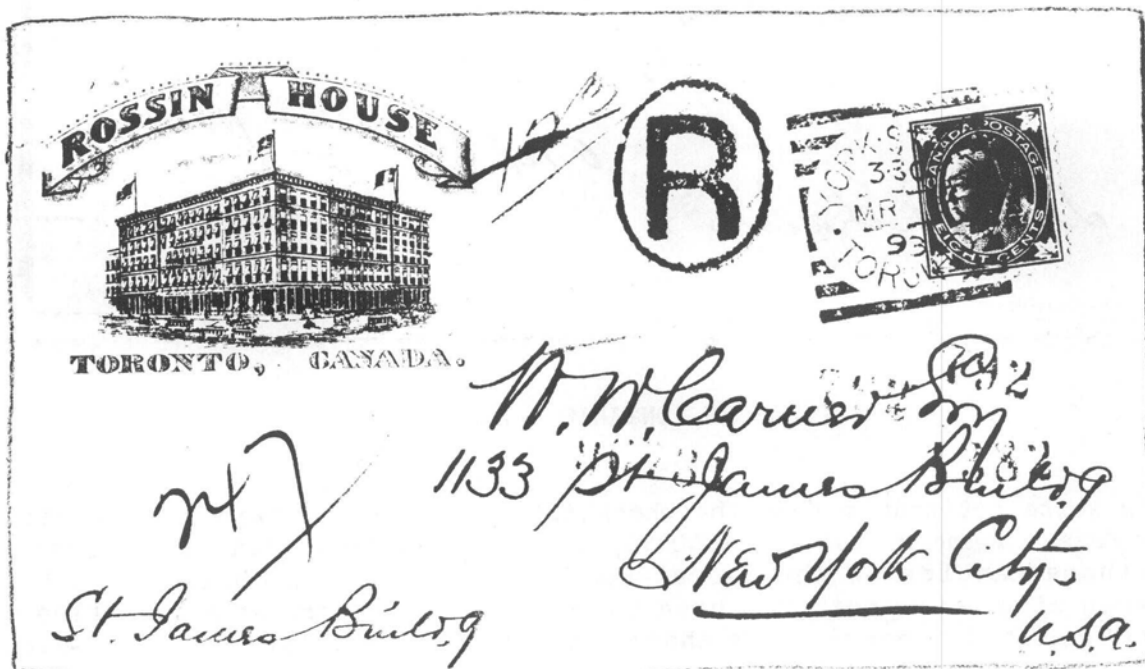 ROSSIN HOUSE
TORONTO, CANADA.
R
YORK ST
330
MR
93
TORO
CANADA POSTAGE
EIGHT CENTS
W. W. Carner
1133 St. James Buildg
New York City
U.S.A.
247
St. James Buildg